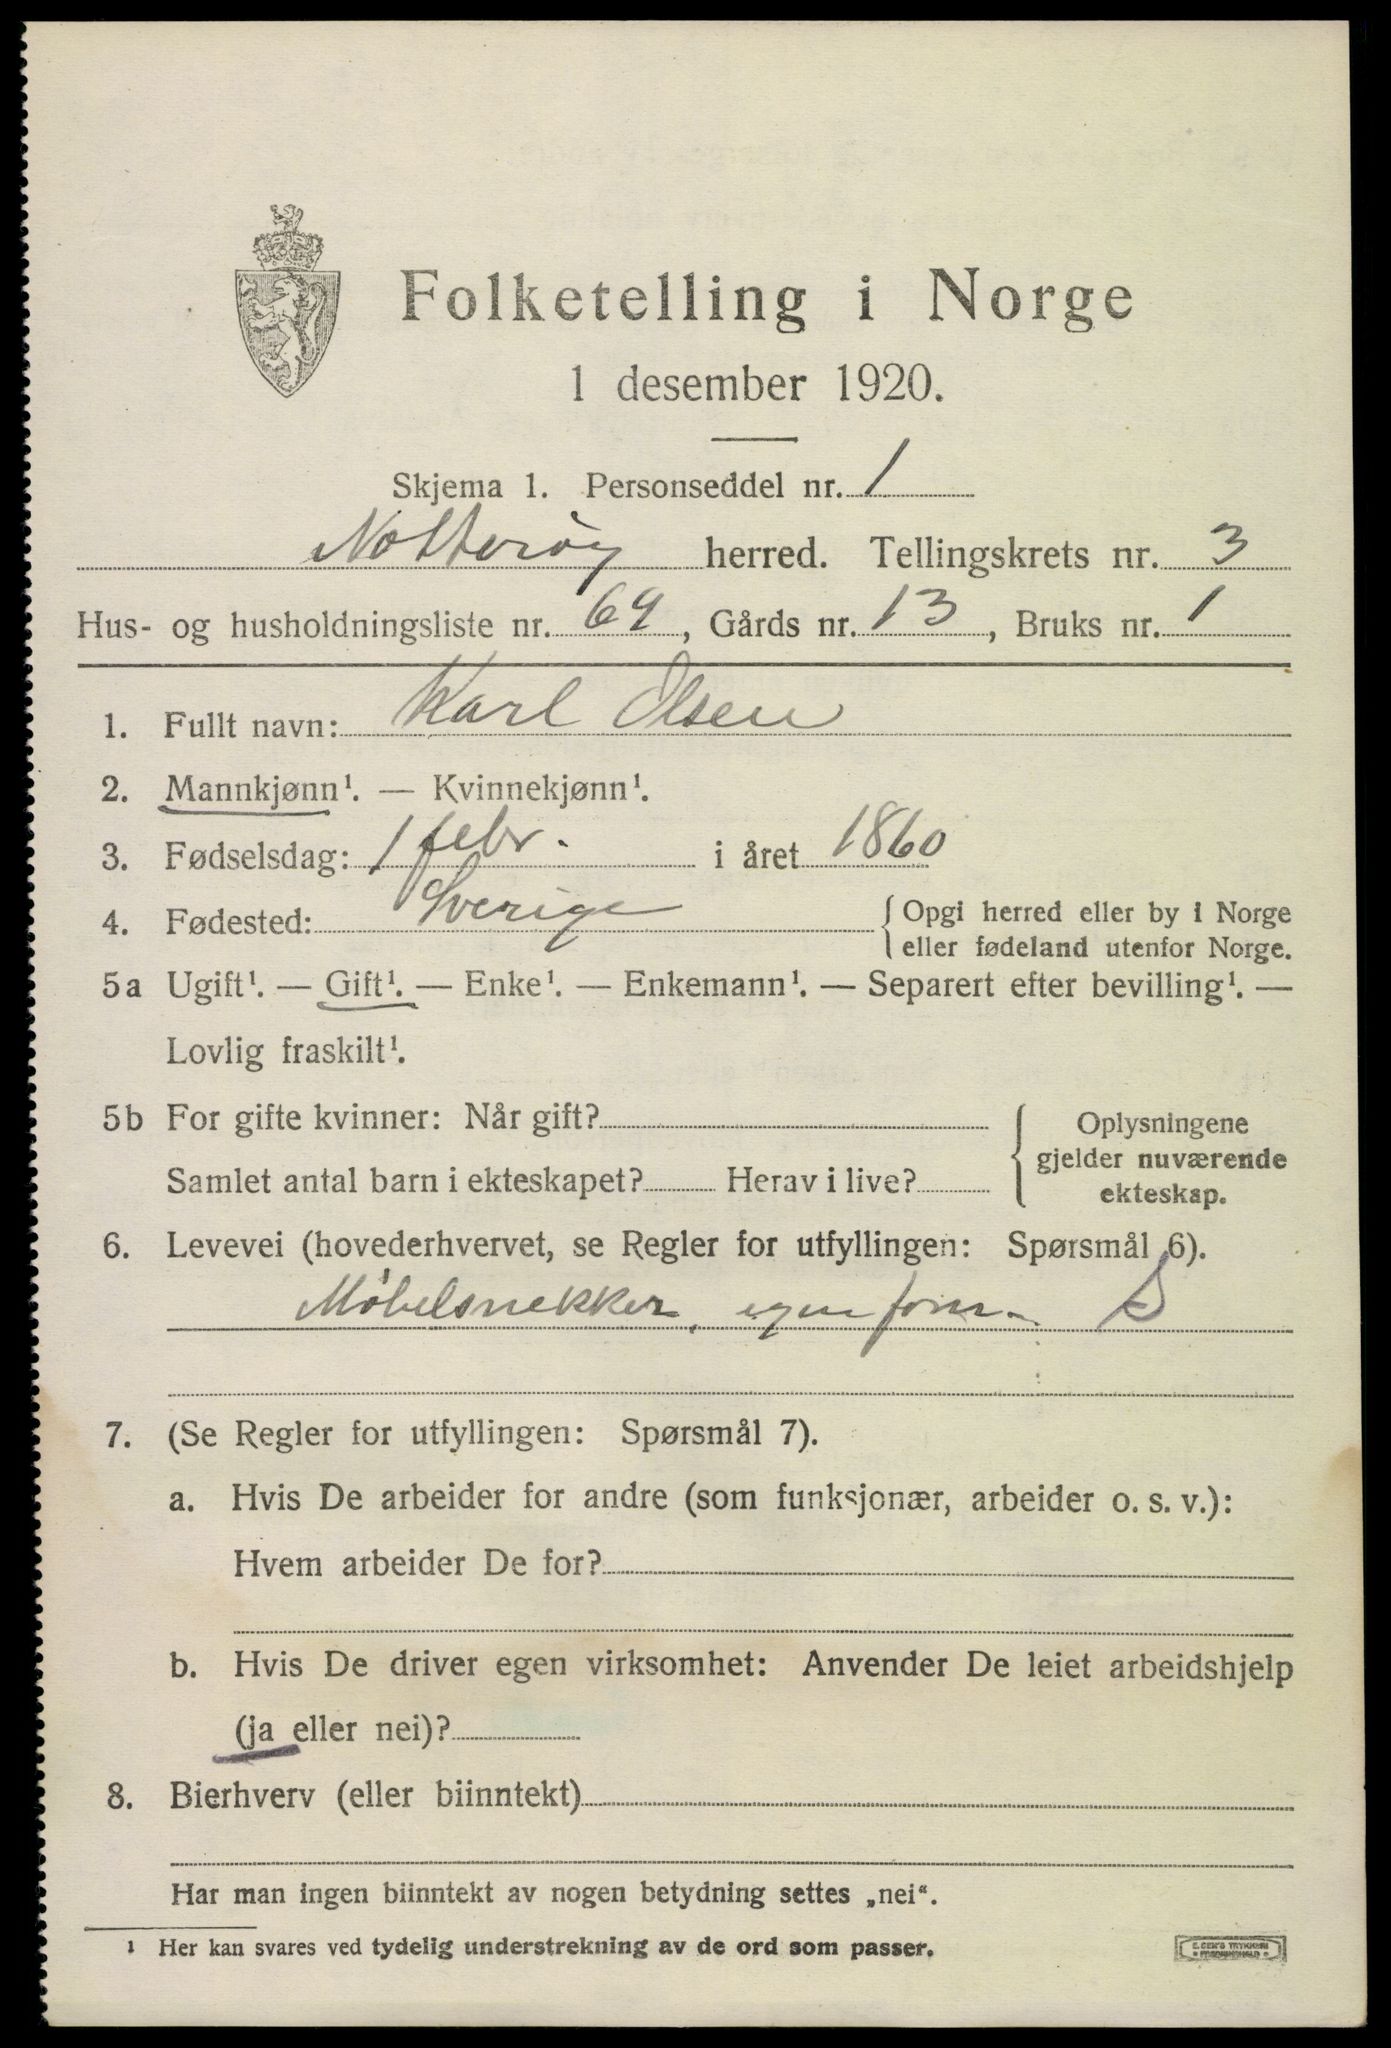 Folketelling i Norge
1 desember 1920.
Skjema 1. Personseddel nr. 1
Nøtterøy herred. Tellingskrets nr. 3
Hus- og husholdningsliste nr. 69, Gårds nr. 13, Bruks nr. 1
1. Fullt navn: Karl Olsen
2. Mannkjønn¹. — Kvinnekjønn¹.
3. Fødselsdag: 1 febr. i året 1860
4. Fødested: Sverige { Opgi herred eller by i Norge
eller fødeland utenfor Norge.
5a Ugift¹. — Gift¹. — Enke¹. — Enkemann¹. — Separert efter bevilling¹. —
Lovlig fraskilt¹.
5b For gifte kvinner: Når gift?
Samlet antal barn i ekteskapet? Herav i live?
Oplysningene
gjelder nuværende
ekteskap.
6. Levevei (hovederhvervet, se Regler for utfyllingen: Spørsmål 6).
Møbelsnekker, egen S
7. (Se Regler for utfyllingen: Spørsmål 7).
a. Hvis De arbeider for andre (som funksjonær, arbeider o. s. v.):
Hvem arbeider De for?
b. Hvis De driver egen virksomhet: Anvender De leiet arbeidshjelp
(ja eller nei)?
8. Bierhverv (eller biinntekt)
Har man ingen biinntekt av nogen betydning settes „nei“.
¹ Her kan svares ved tydelig understrekning av de ord som passer.